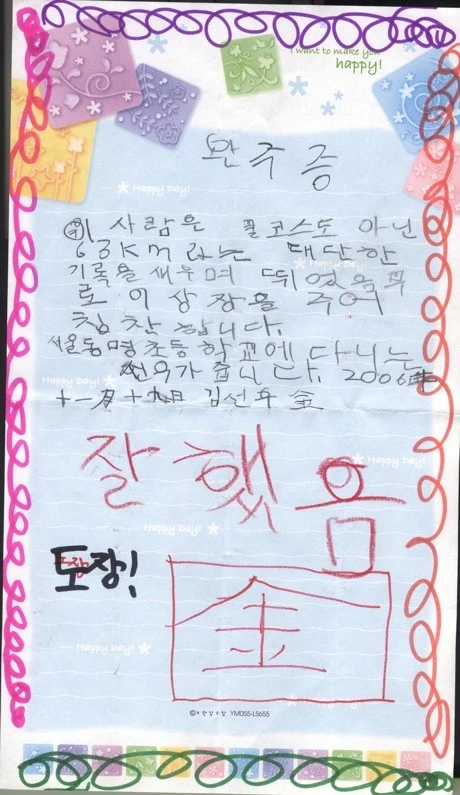 I want to make you
happy!
완주증
Happy Day!
위 사람은 풀코스도 아닌
63KM 라는 대단한
Happy Day!
기록을 세우며 뛰었을므
로 이 상장을 주어
칭찬합니다.
서울동명초등학교에 다니는
선우가 줍니다. 2006年
Happy Day!
十一月 十九日 김선우 金
잘했음
Happy Day!
Happy Day!
도장!
金
Happy Day!
Happy Day!
YM055-LS655